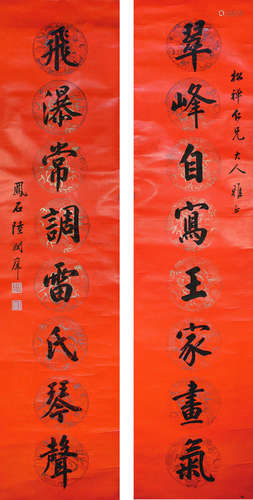 松禪仁兄大人雅屬
翠峰自寫王家畫氣
飛瀑常調雷氏琴聲
鳳石陸潤庠